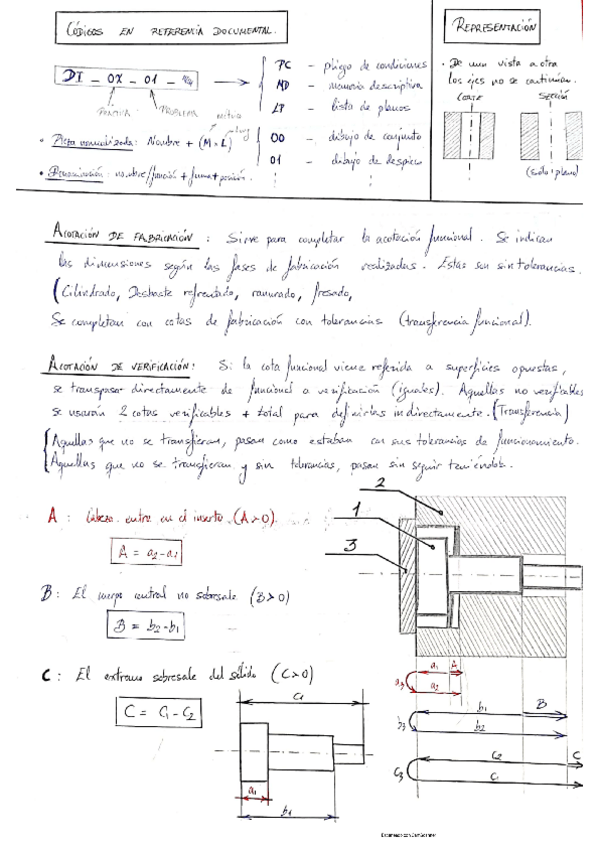 CÓDIGOS EN REFERENCIA DOCUMENTAL.
DI - 0X - 01 -
PC - pliego de condiciones
MD - memoria descriptiva
LP - lista de planos
00 - dibujo de conjunto
01 - dibujo de despiece
PRÁCTICA
PROBLEMA
métrica
• Pieza normalizada: Nombre + (M x L)
• Denominación: nombre/función + forma + posición.
REPRESENTACIÓN
• De una vista a otra
los ejes no se continúan.
CORTE
SECCIÓN
(solo 1 plano)
ACOTACIÓN DE FABRICACIÓN: Sirve para completar la acotación funcional. Se indican
las dimensiones según las fases de fabricación realizadas. Estas son sin tolerancias.
(Cilindrado, Desbaste refrentado, ranurado, fresado,
Se completan con cotas de fabricación con tolerancias (transferencia funcional).
ACOTACIÓN DE VERIFICACIÓN: Si la cota funcional viene referida a superficies opuestas,
se transpasa directamente de funcional a verificación (iguales). Aquellas no verificables
se usarán 2 cotas verificables + total para definirlas indirectamente. (Transferencia)
Aquellas que no se transfieran, pasan como estaban con sus tolerancias de funcionamiento.
Aquellas que no se transfieran y sin tolerancias, pasan sin seguir teniéndola.
A: Cabeza entre en el inserto. (A>0).
A = a2-a1
B: El cuerpo central no sobresale (B>0)
B = b2-b1
C: El extremo sobresale del sólido (C>0)
C = C1-C2
2
1
3
a1
A
a3
a2
b1
B
b3
b2
C2
C
C3
C1
C1
a1
b1
Escaneado con CamScanner